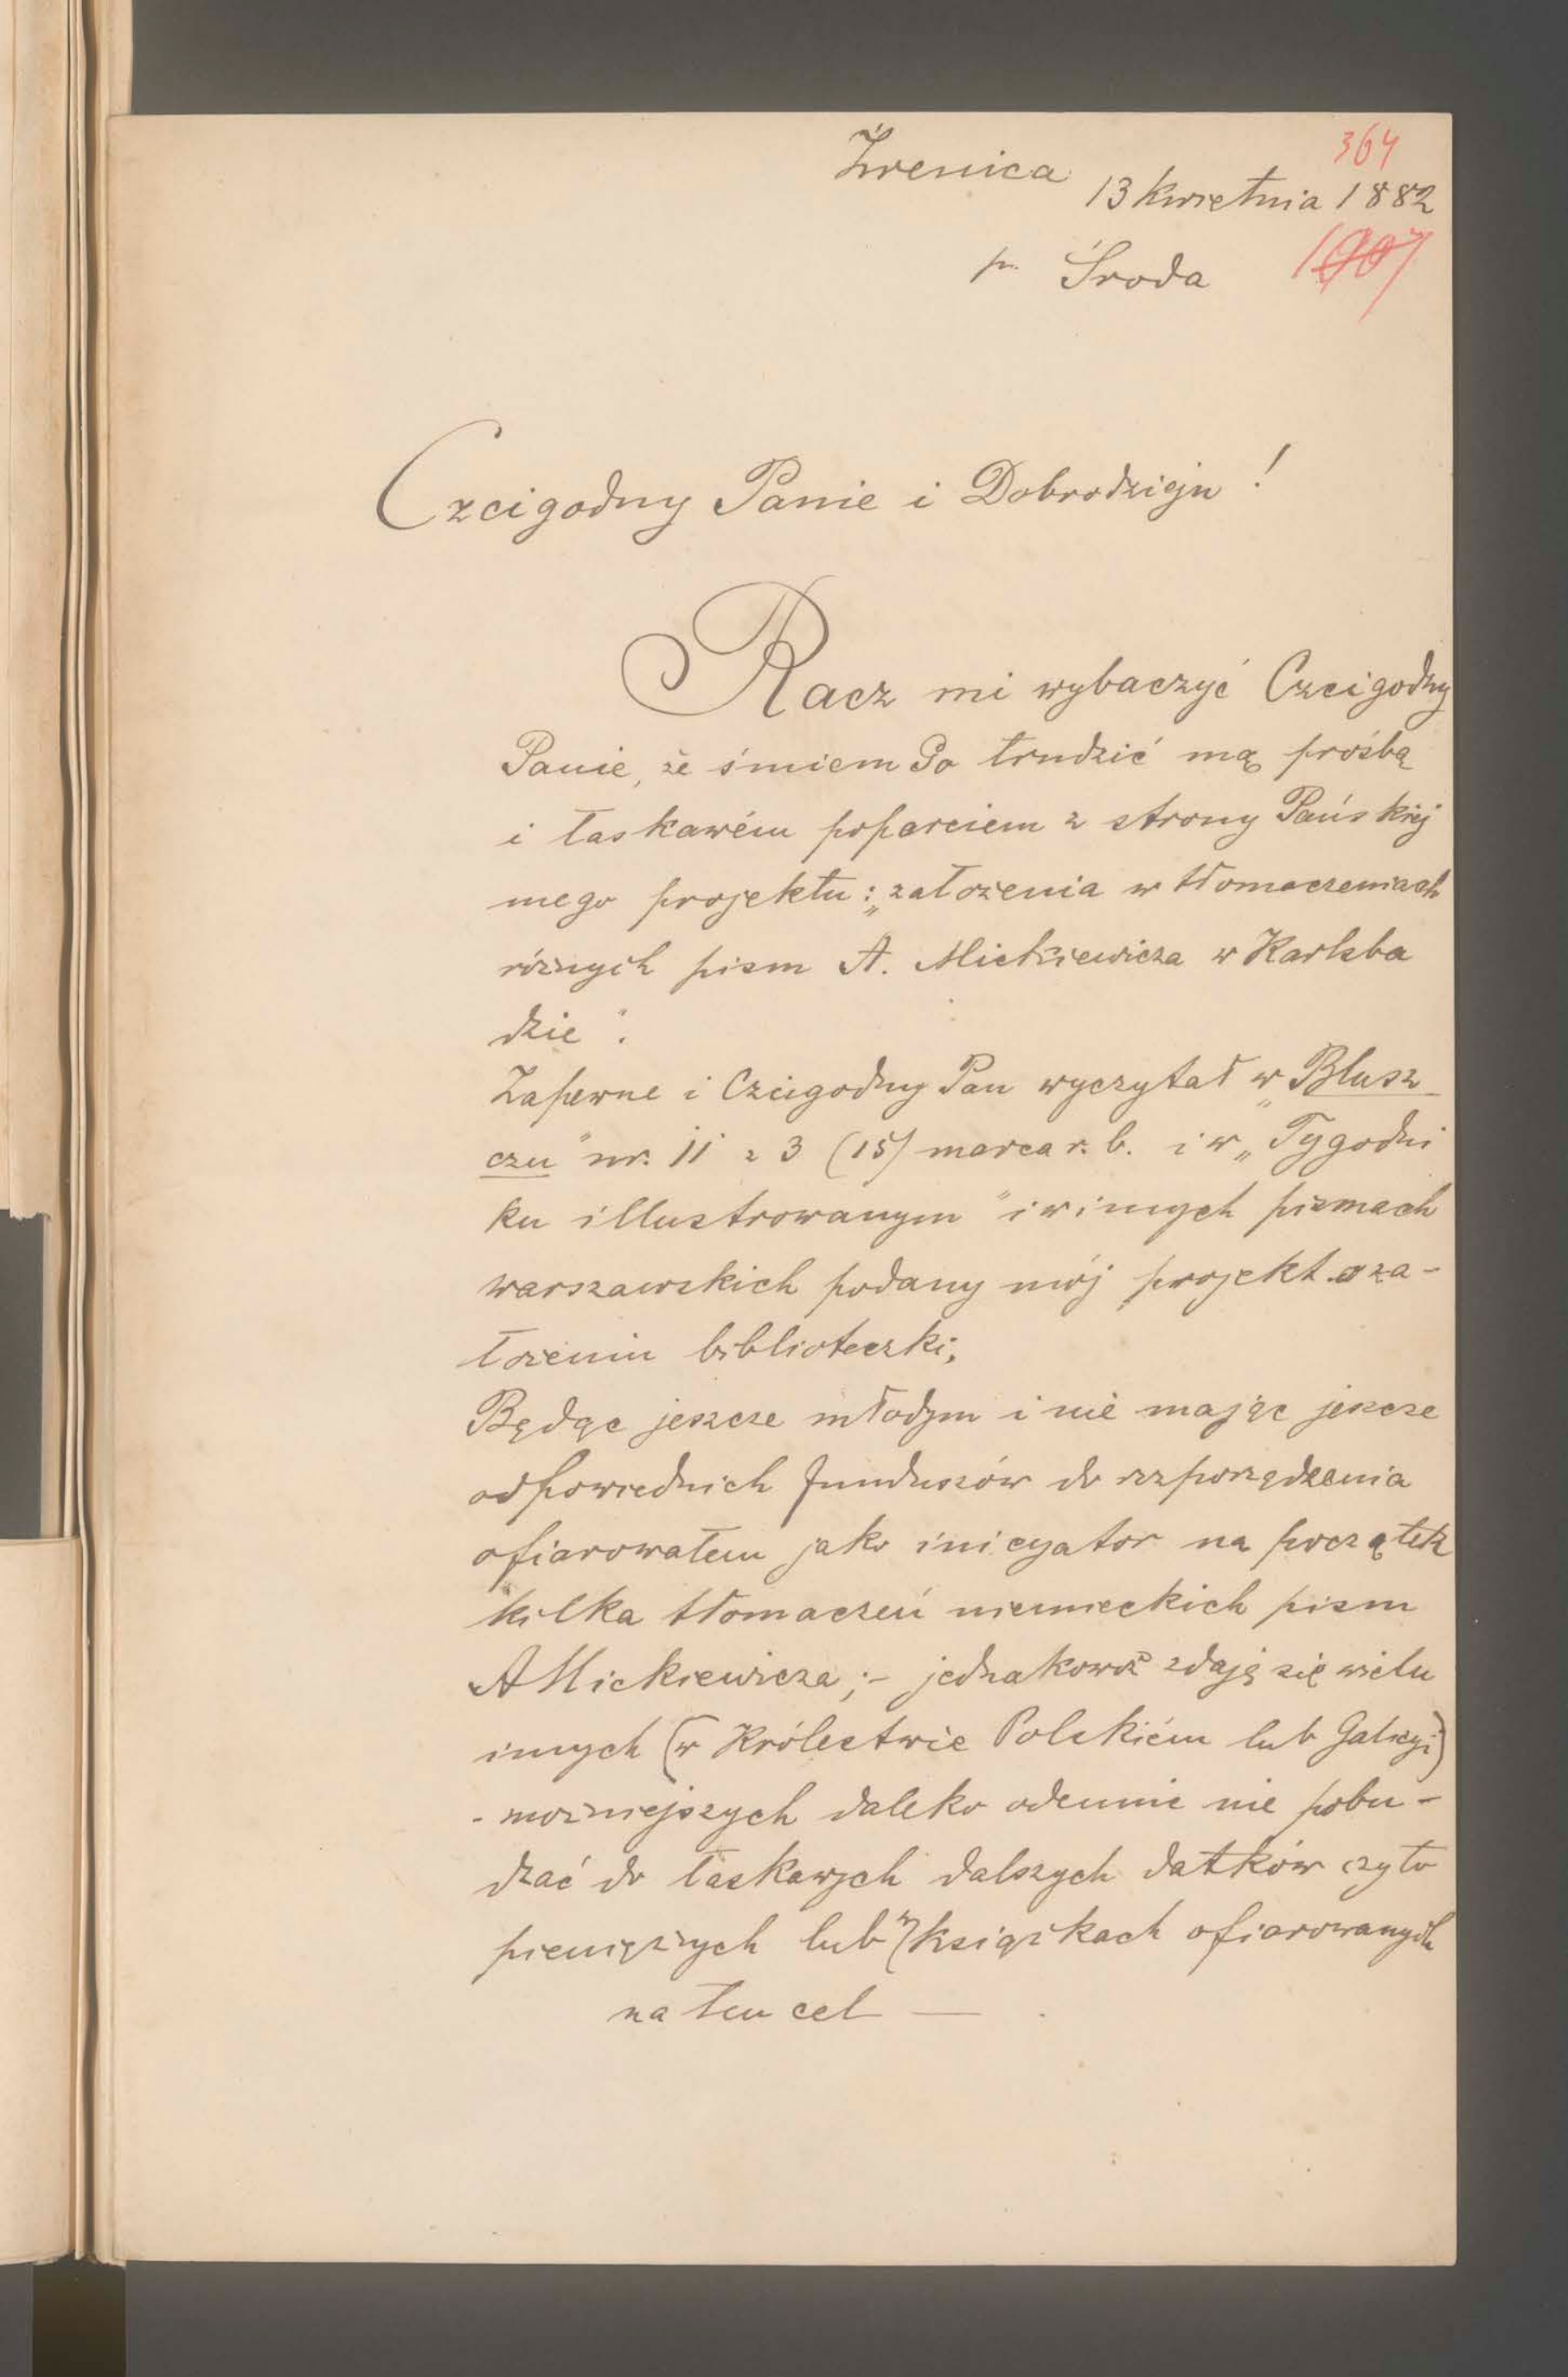 364
Żrenica
13 kwietnia 1882
p. Środa
Czcigodny Panie i Dobrodzieju!
Racz mi wybaczyć Czcigodny
Panie, że śmiem Go trudzić mą prośbą
i łaskawém poparciem z strony Pańskiej
mego projektu: „założenia w tłomaczeniach
różnych pism A. Mickiewicza w Karlsba
dzie".
Zapewne i Czcigodny Pan wyczytał w „Blusz
czu" nr. 11 z 3 (15) marca r. b. i w „Tygodni
ku illustrowanym" i w innych pismach
warszawskich podany mój projekt o za-
łożeniu biblioteczki;
Będąc jeszcze młodym i nie mając jeszcze
odpowiednich funduszów do rozporządzenia
ofiarowałem jako inicyator na początek
kilka tłomaczeń niemieckich pism
A Mickiewicza; - jednakowoż zdają się wielu
innych (w Królestwie Polskiém lub Galicyi)
- możniejszych daleko odemnie nie pobu-
dzać do łaskawych dalszych datków czyto
pieniężnych lub w książkach ofiarowanych
na ten cel —